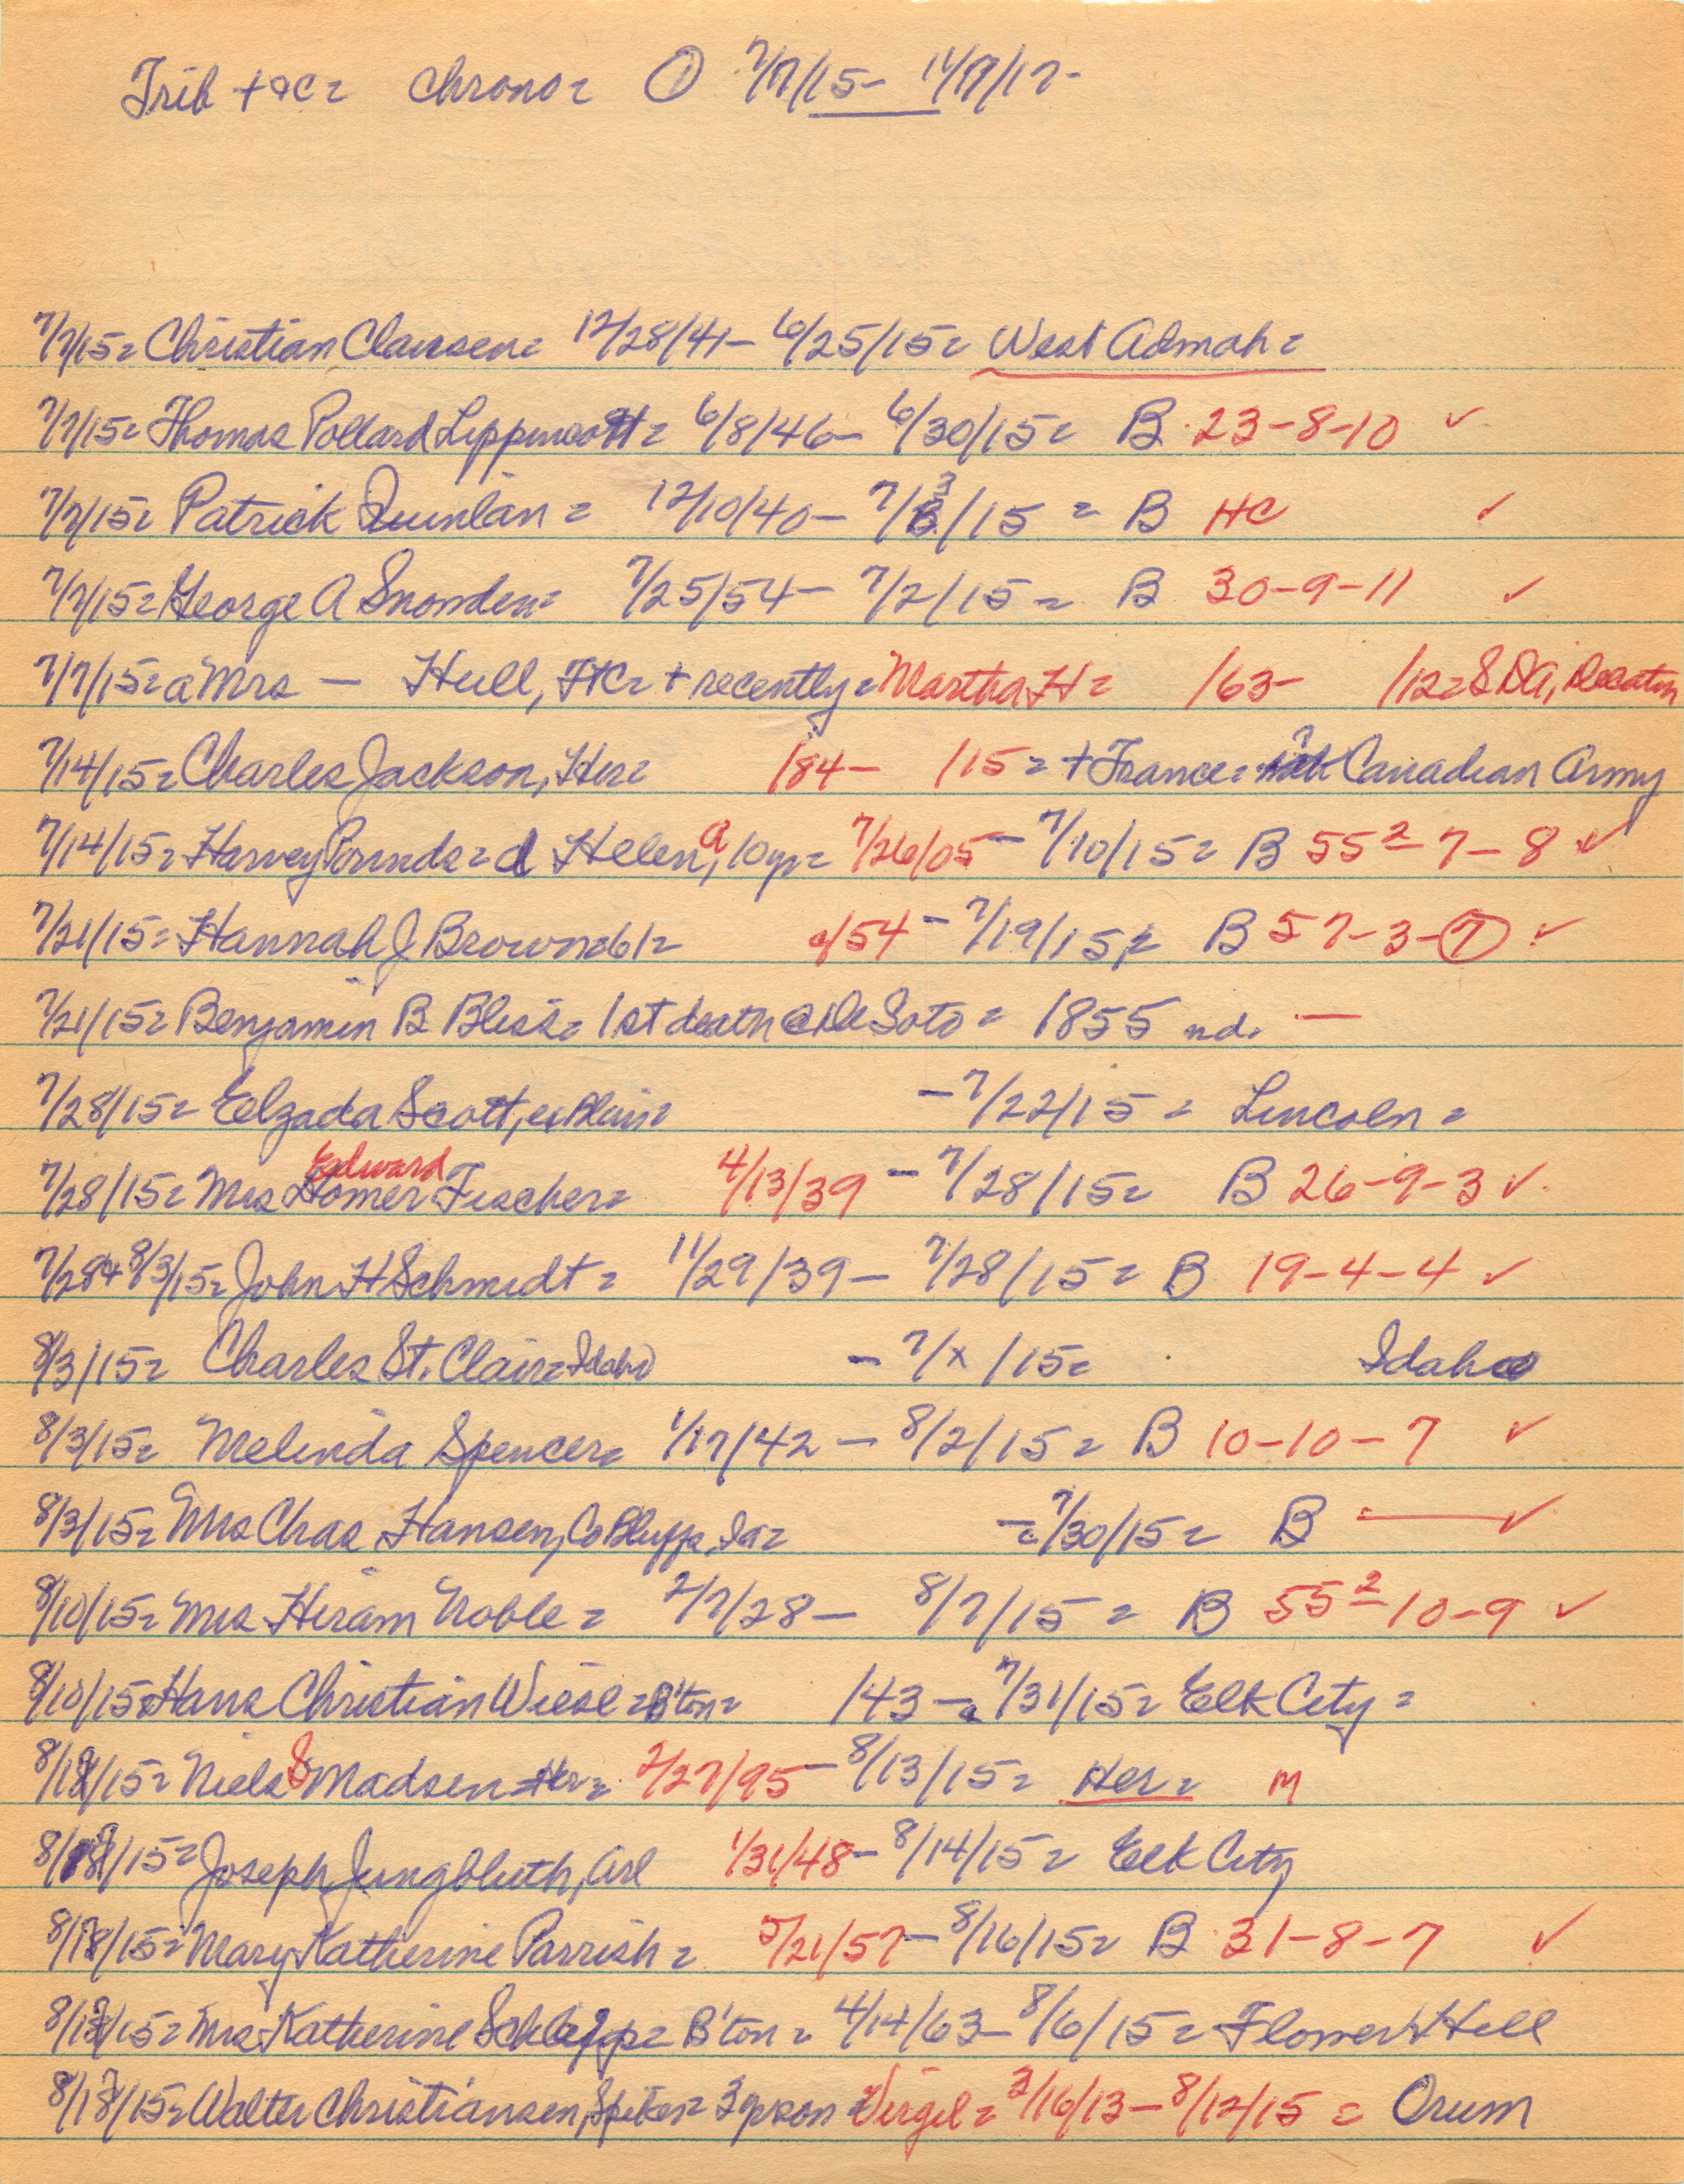 Trib + &c = Chrono = ① 7/7/15 - 11/7/17 -
7/7/15 = Christian Clausen = 12/28/41 - 6/25/15 = West Admah =
7/7/15 = Thomas Pollard Lippincott = 6/8/46 - 6/30/15 = B 23-8-10 ✓
7/7/15 = Patrick Quinlan = 12/10/40 - 7/3/15 = B HC ✓
7/7/15 = George A Snowden = 7/25/54 - 7/2/15 = B 30-9-11 ✓
7/7/15 = a Mrs — Hull, FtC = + recently = Martha H = /63 - /12 = SDA, Decatur
7/14/15 = Charles Jackson, Her = /84 - /15 = + France = ? Canadian Army
7/14/15 = Harvey Pounds = d Helen A, 10 yr = 7/26/05 - 7/10/15 = B 55² - 7 - 8 ✓
7/21/15 = Hannah J Brown = 61 = c/54 - 7/19/15 = B 57-3-⑦ ✓
7/21/15 = Benjamin B Bliss = 1st death @ De Soto = 1855 nd. —
7/28/15 = Elzada Scott, ex Blair = - 7/22/15 = Lincoln =
7/28/15 = Mrs Homer Edward Fischer = 4/13/39 - 7/28/15 = B 26-9-3 ✓
7/28 + 8/3/15 = John H Schmidt = 11/29/39 - 7/28/15 = B 19-4-4 ✓
8/3/15 = Charles St. Clair = Idaho - 7/x/15 = Idaho
8/3/15 = Melinda Spencer = 1/17/42 - 8/2/15 = B 10-10-7 ✓
8/3/15 = Mrs Chas Hansen, Co Bluffs, Ia = - 7/30/15 = B — ✓
8/10/15 = Mrs Hiram Noble = 2/7/28 - 8/7/15 = B 55² - 10-9 ✓
8/10/15 = Hans Christian Wiese = B'ton = /43 - 7/31/15 = Elk City =
8/18/15 = Niels S Madsen = Her = 2/27/95 - 8/13/15 = Her = M
8/18/15 = Joseph Jungbluth, Arl 1/31/48 - 8/14/15 = Elk City
8/18/15 = Mary Katherine Parrish = 5/21/57 - 8/16/15 = B 31-8-7 ✓
8/18/15 = Mrs Katherine = B'ton = 4/14/63 - 8/6/15 = Flower Hill
8/18/15 = Walter Christiansen, Spiker = 3 yr son = Virgil = 3/16/13 - 8/12/15 = Orum